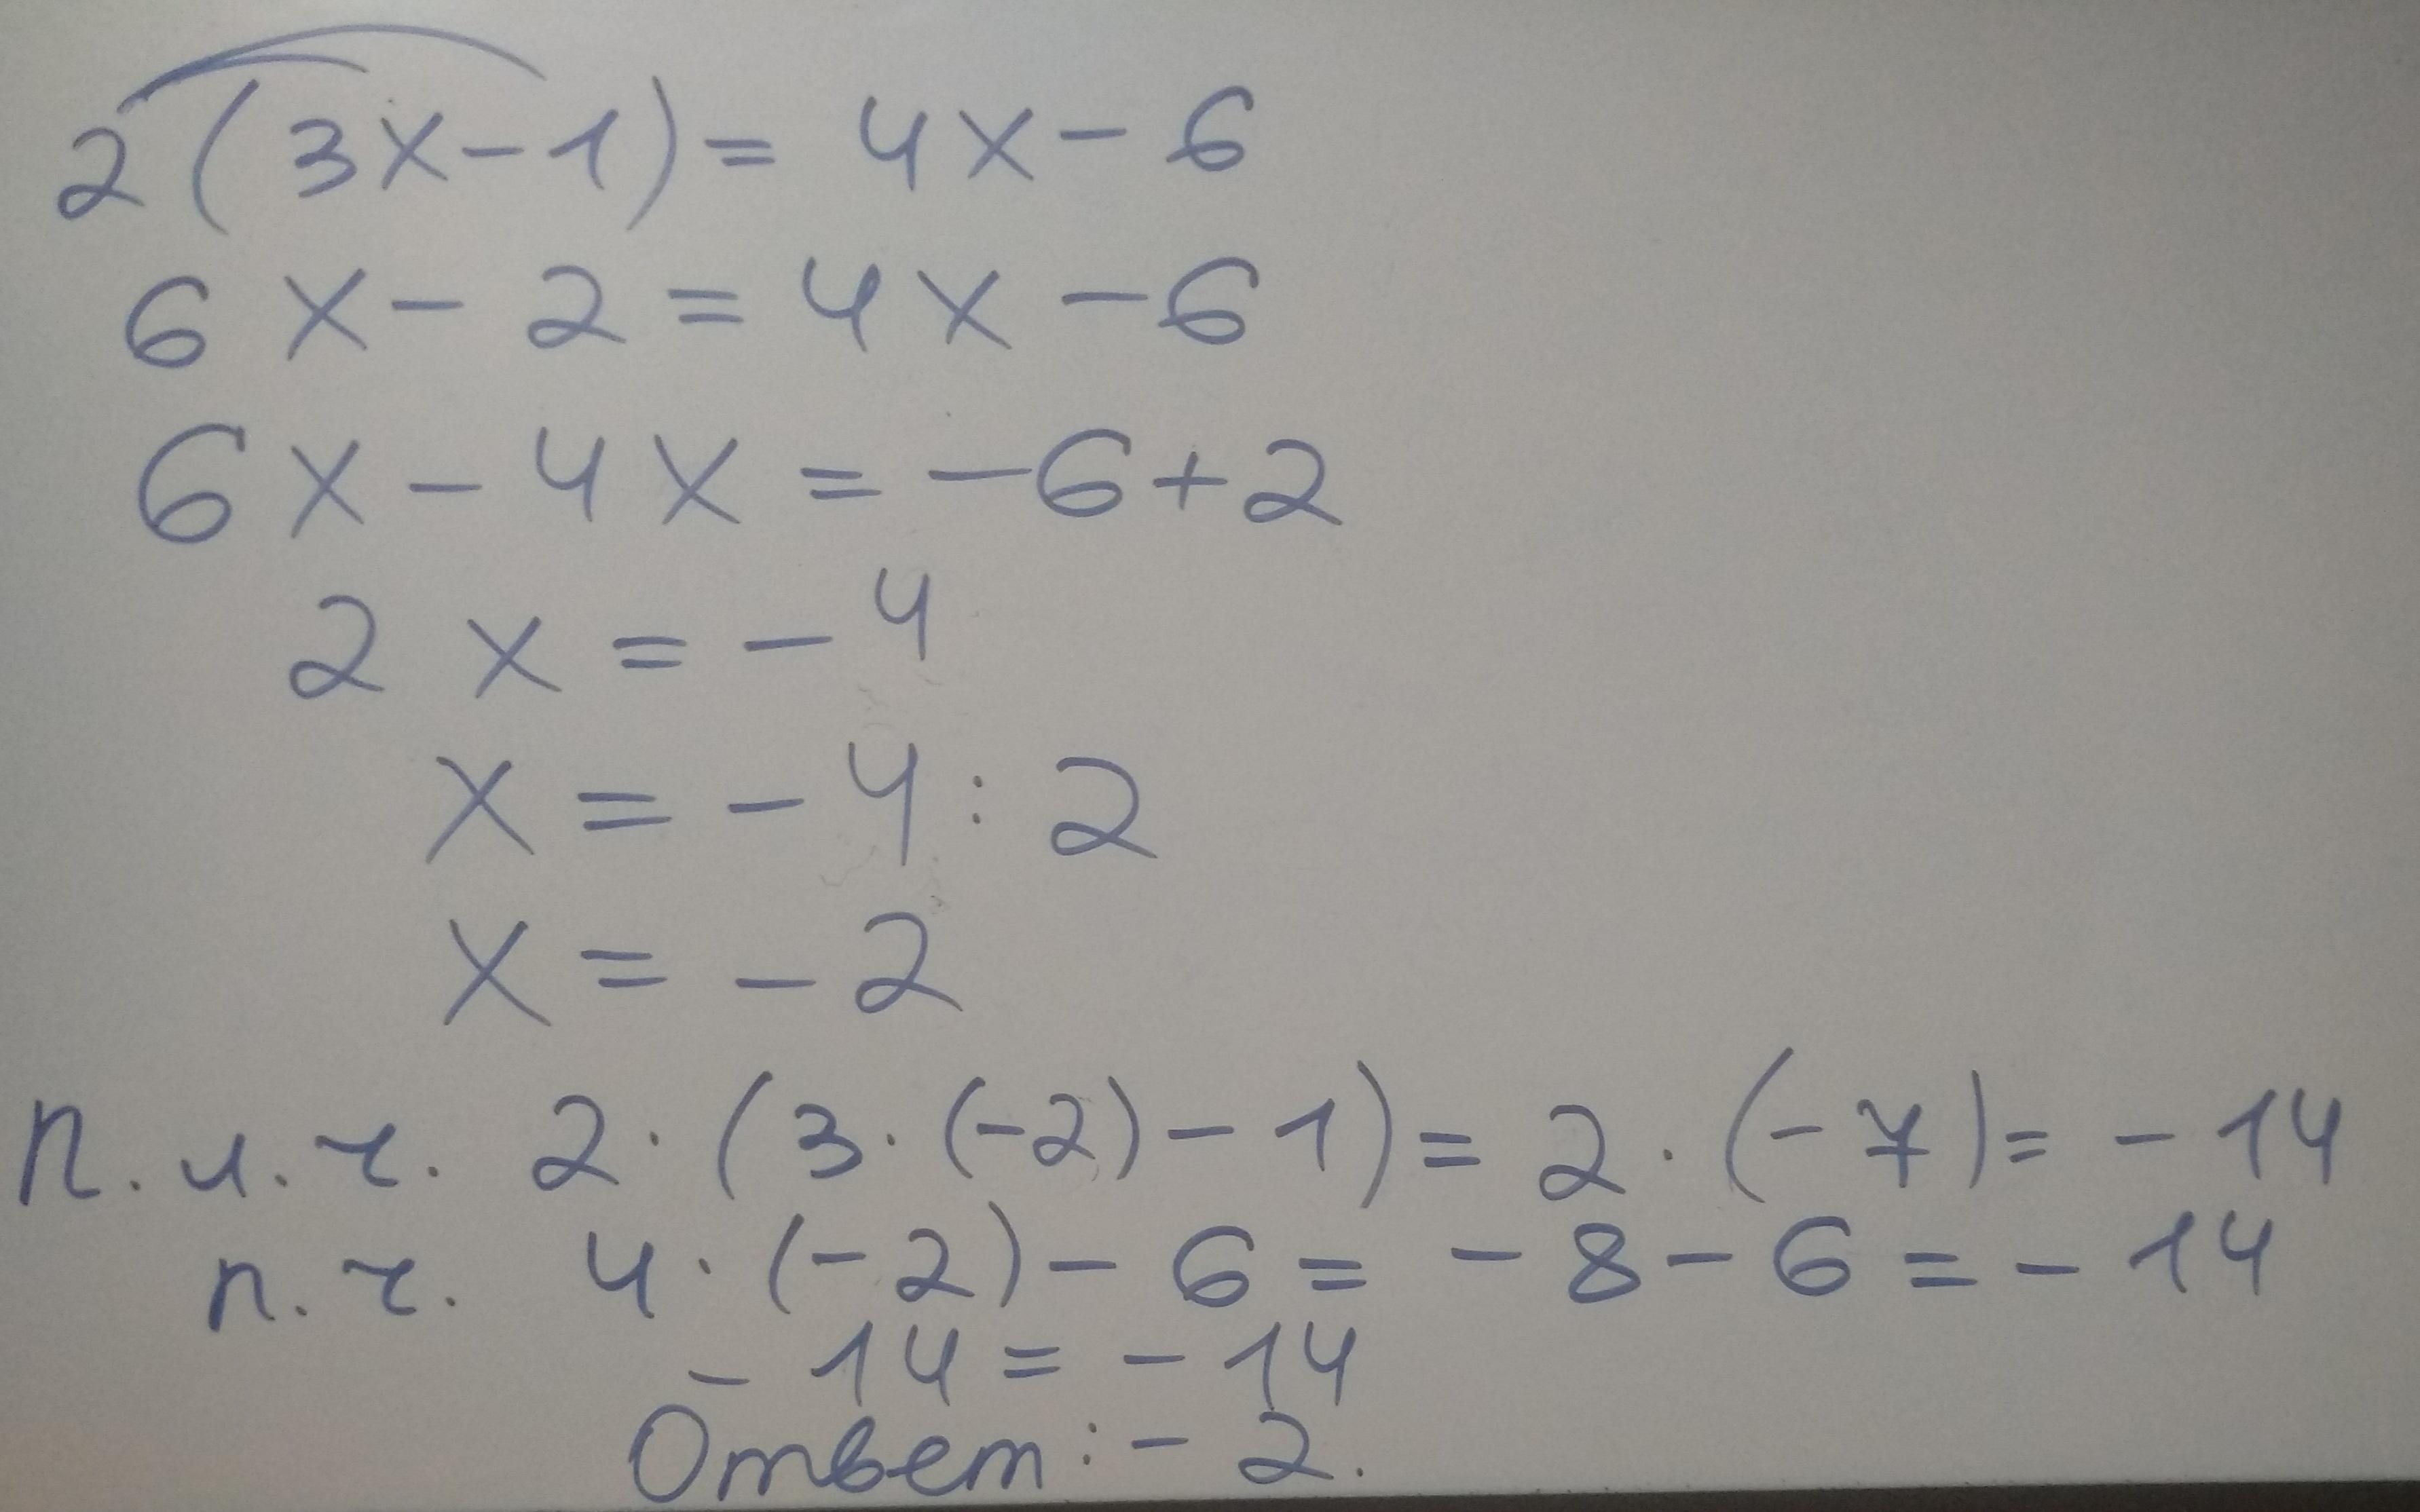 2(3x-1)=4x-6
6x-2=4x-6
6x-4x=-6+2
2x=-4
x=-4:2
x=-2
П.л.ч. 2·(3·(-2)-1)=2·(-7)=-14
п.ч. 4·(-2)-6=-8-6=-14
-14=-14
Ответ:-2.